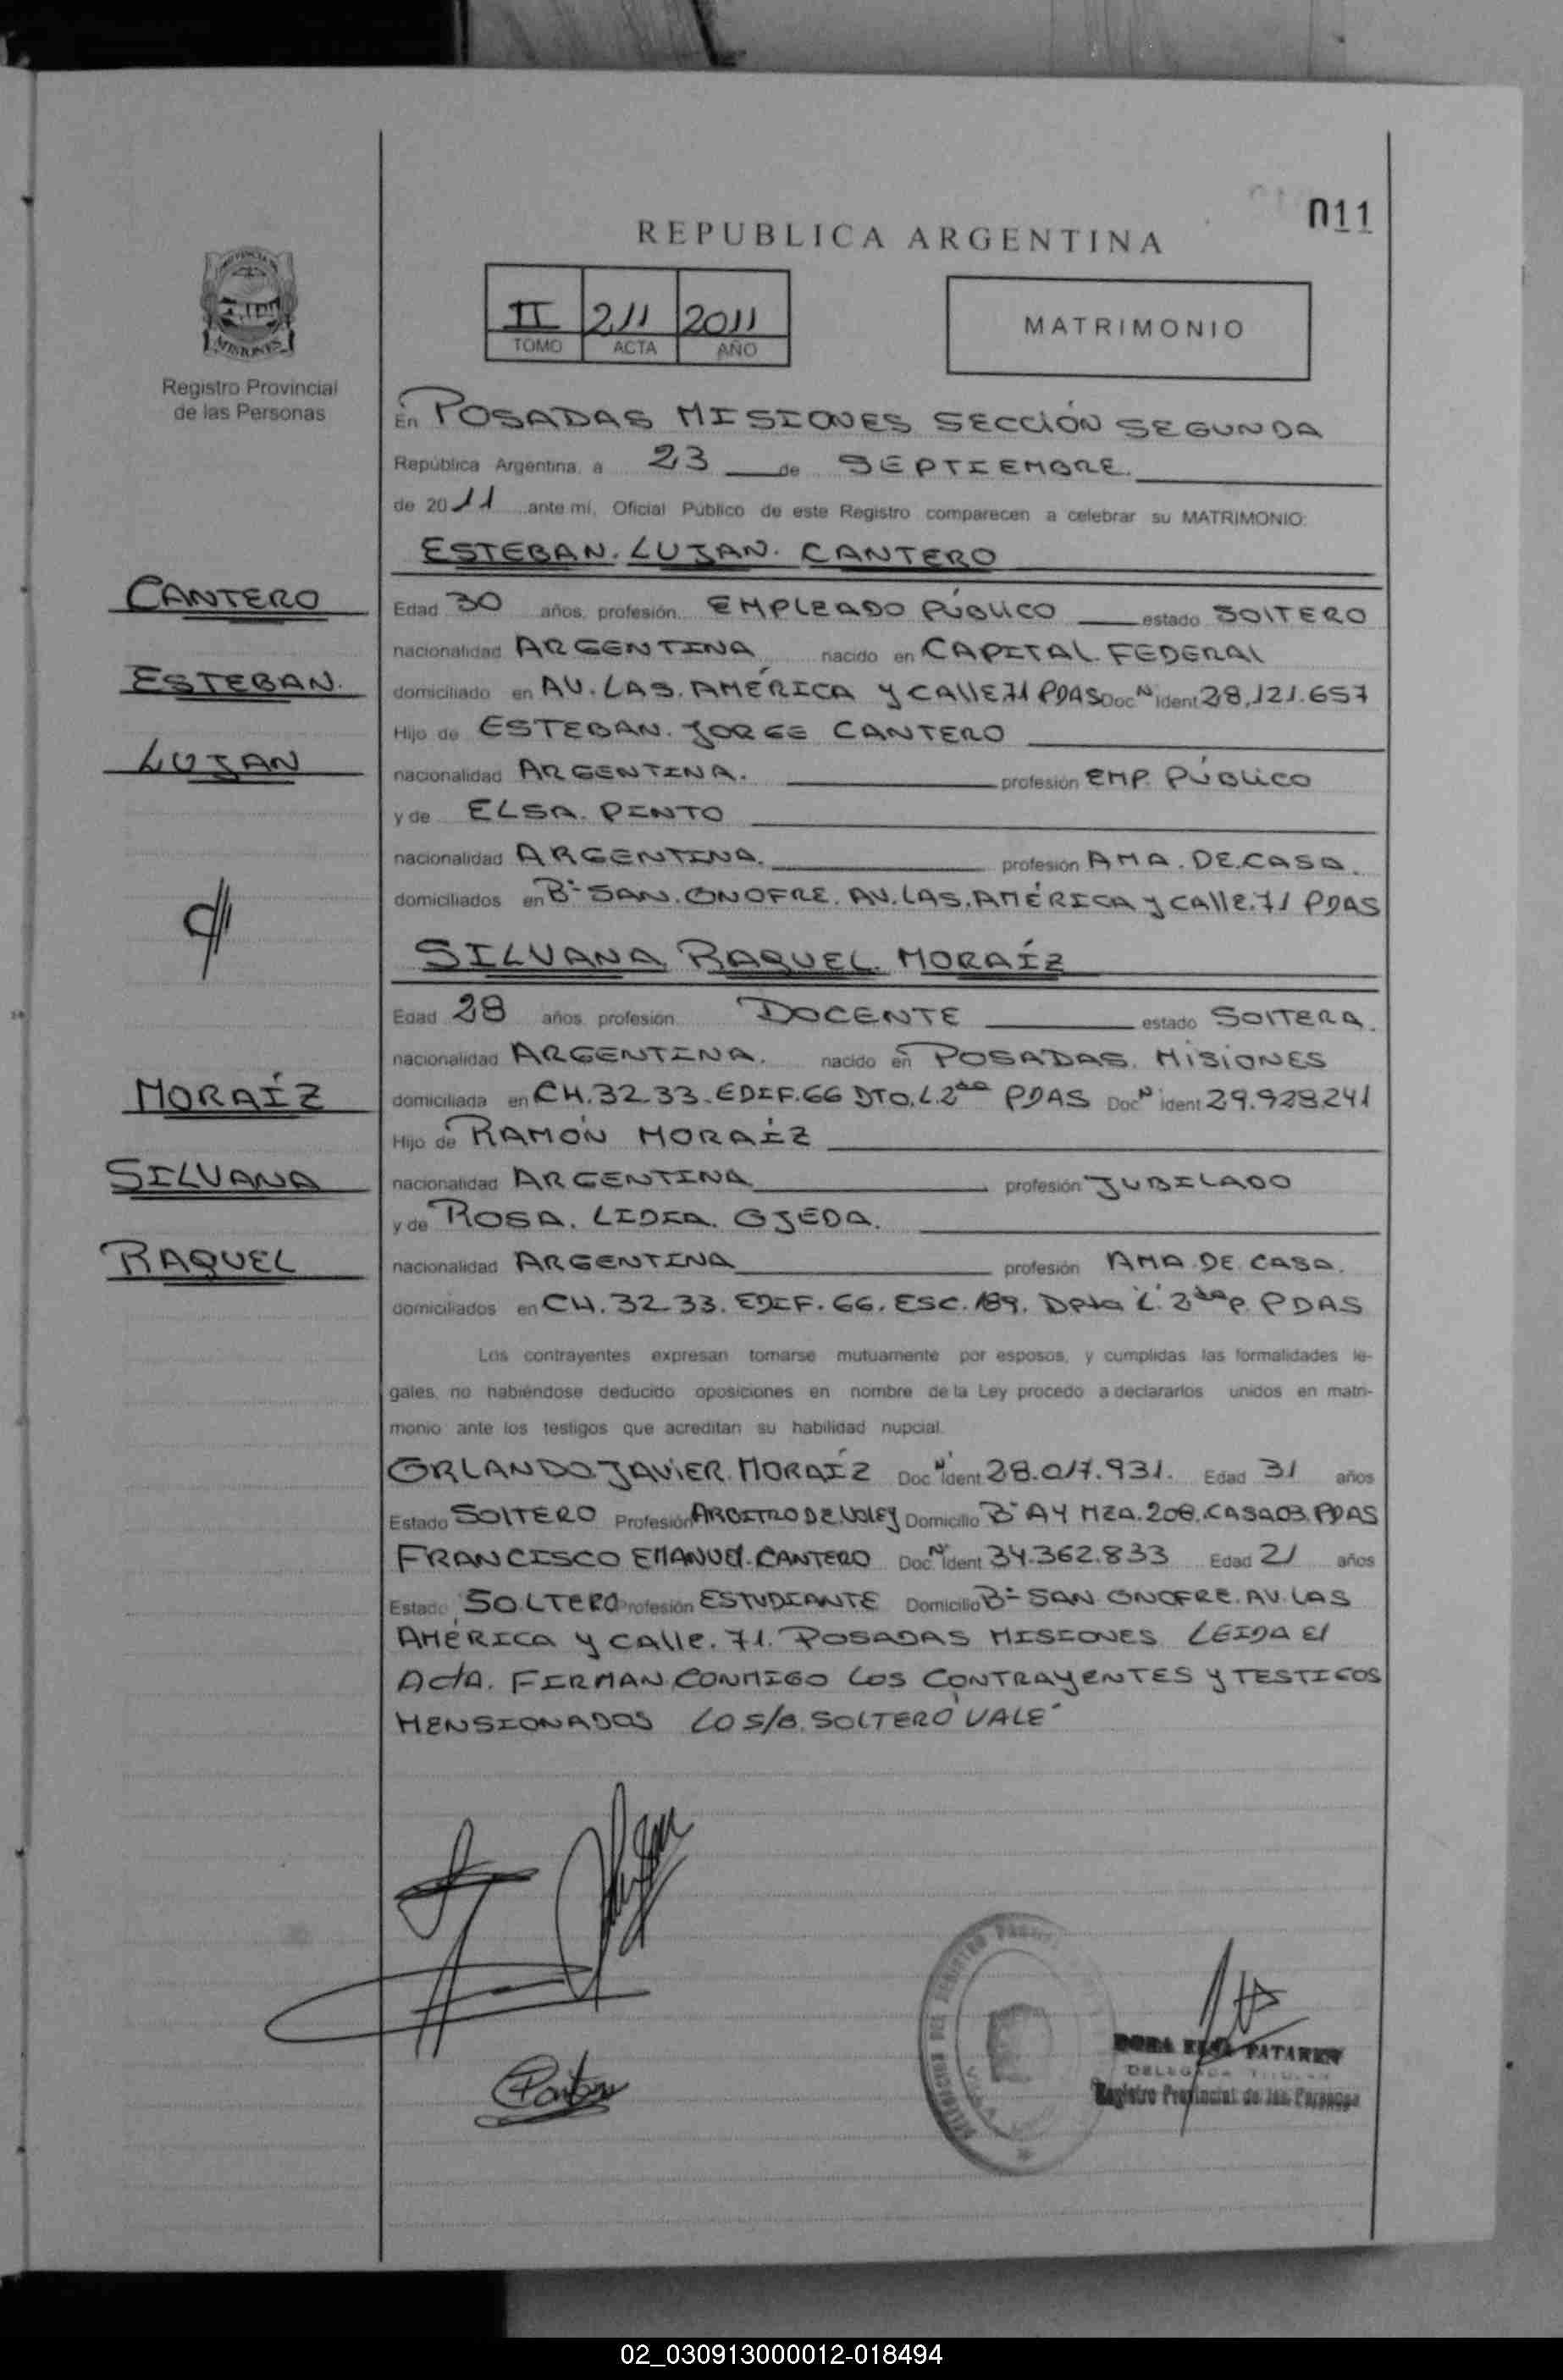 011
REPUBLICA ARGENTINA
II 211 2011
TOMO ACTA AÑO
MATRIMONIO
MISIONES
Registro Provincial
de las Personas
En POSADAS MISIONES SECCIÓN SEGUNDA
República Argentina, a 23 de SEPTIEMBRE.
de 2011 ante mí, Oficial Público de este Registro comparecen a celebrar su MATRIMONIO:
ESTEBAN. LUJAN. CANTERO
CANTERO
Edad 30 años, profesión EMPLEADO PÚBLICO estado SOLTERO
nacionalidad ARGENTINA nacido en CAPITAL FEDERAL
ESTEBAN.
domiciliado en AV. LAS. AMÉRICA Y CALLE 71 PDAS Doc N ident 28.121.657
Hijo de ESTEBAN. JORGE CANTERO
LUJAN
nacionalidad ARGENTINA. profesión EMP. PÚBLICO
y de ELSA. PINTO
nacionalidad ARGENTINA. profesión AMA. DE. CASA.
domiciliados en Bº SAN. ONOFRE. AV. LAS. AMÉRICA y CALLE. 71 PDAS
SILVANA RAQUEL. MORAÍZ
Edad 28 años profesión DOCENTE estado SOLTERA.
nacionalidad ARGENTINA. nacido en POSADAS. MISIONES
MORAÍZ
domiciliada en CH. 32-33. EDIF. 66 DTO. L. 2do PDAS Doc N ident 29.928.241
Hijo de RAMÓN MORAÍZ
SILVANA
nacionalidad ARGENTINA profesión JUBILADO
y de ROSA. LIDIA. OJEDA.
RAQUEL
nacionalidad ARGENTINA profesión AMA. DE. CASA.
domiciliados en CH. 32-33. EDIF. 66. ESC. 189. Dpto L. 2do P. PDAS
Los contrayentes expresan tomarse mutuamente por esposos, y cumplidas las formalidades le-
gales, no habiéndose deducido oposiciones en nombre de la Ley procedo a declararlos unidos en matri-
monio ante los testigos que acreditan su habilidad nupcial.
ORLANDO. JAVIER. MORAÍZ Doc N ident 28.017.931. Edad 31 años
Estado SOLTERO Profesión ARBITRO DE VOLEY Domicilio Bº A4 MZA. 208. CASA 03. PDAS
FRANCISCO EMANUEL. CANTERO Doc N ident 34.362.833 Edad 21 años
Estado SOLTERO Profesión ESTUDIANTE Domicilio Bº SAN ONOFRE. AV. LAS
AMÉRICA y CALLE. 71. POSADAS MISIONES LEIDA El
ACTA. FIRMAN. CONMIGO LOS CONTRAYENTES y TESTIGOS
MENSIONADOS LO S/B. SOLTERO VALE
DELEGADA TITULAR
Registro Provincial de las Personas
02_030913000012-018494